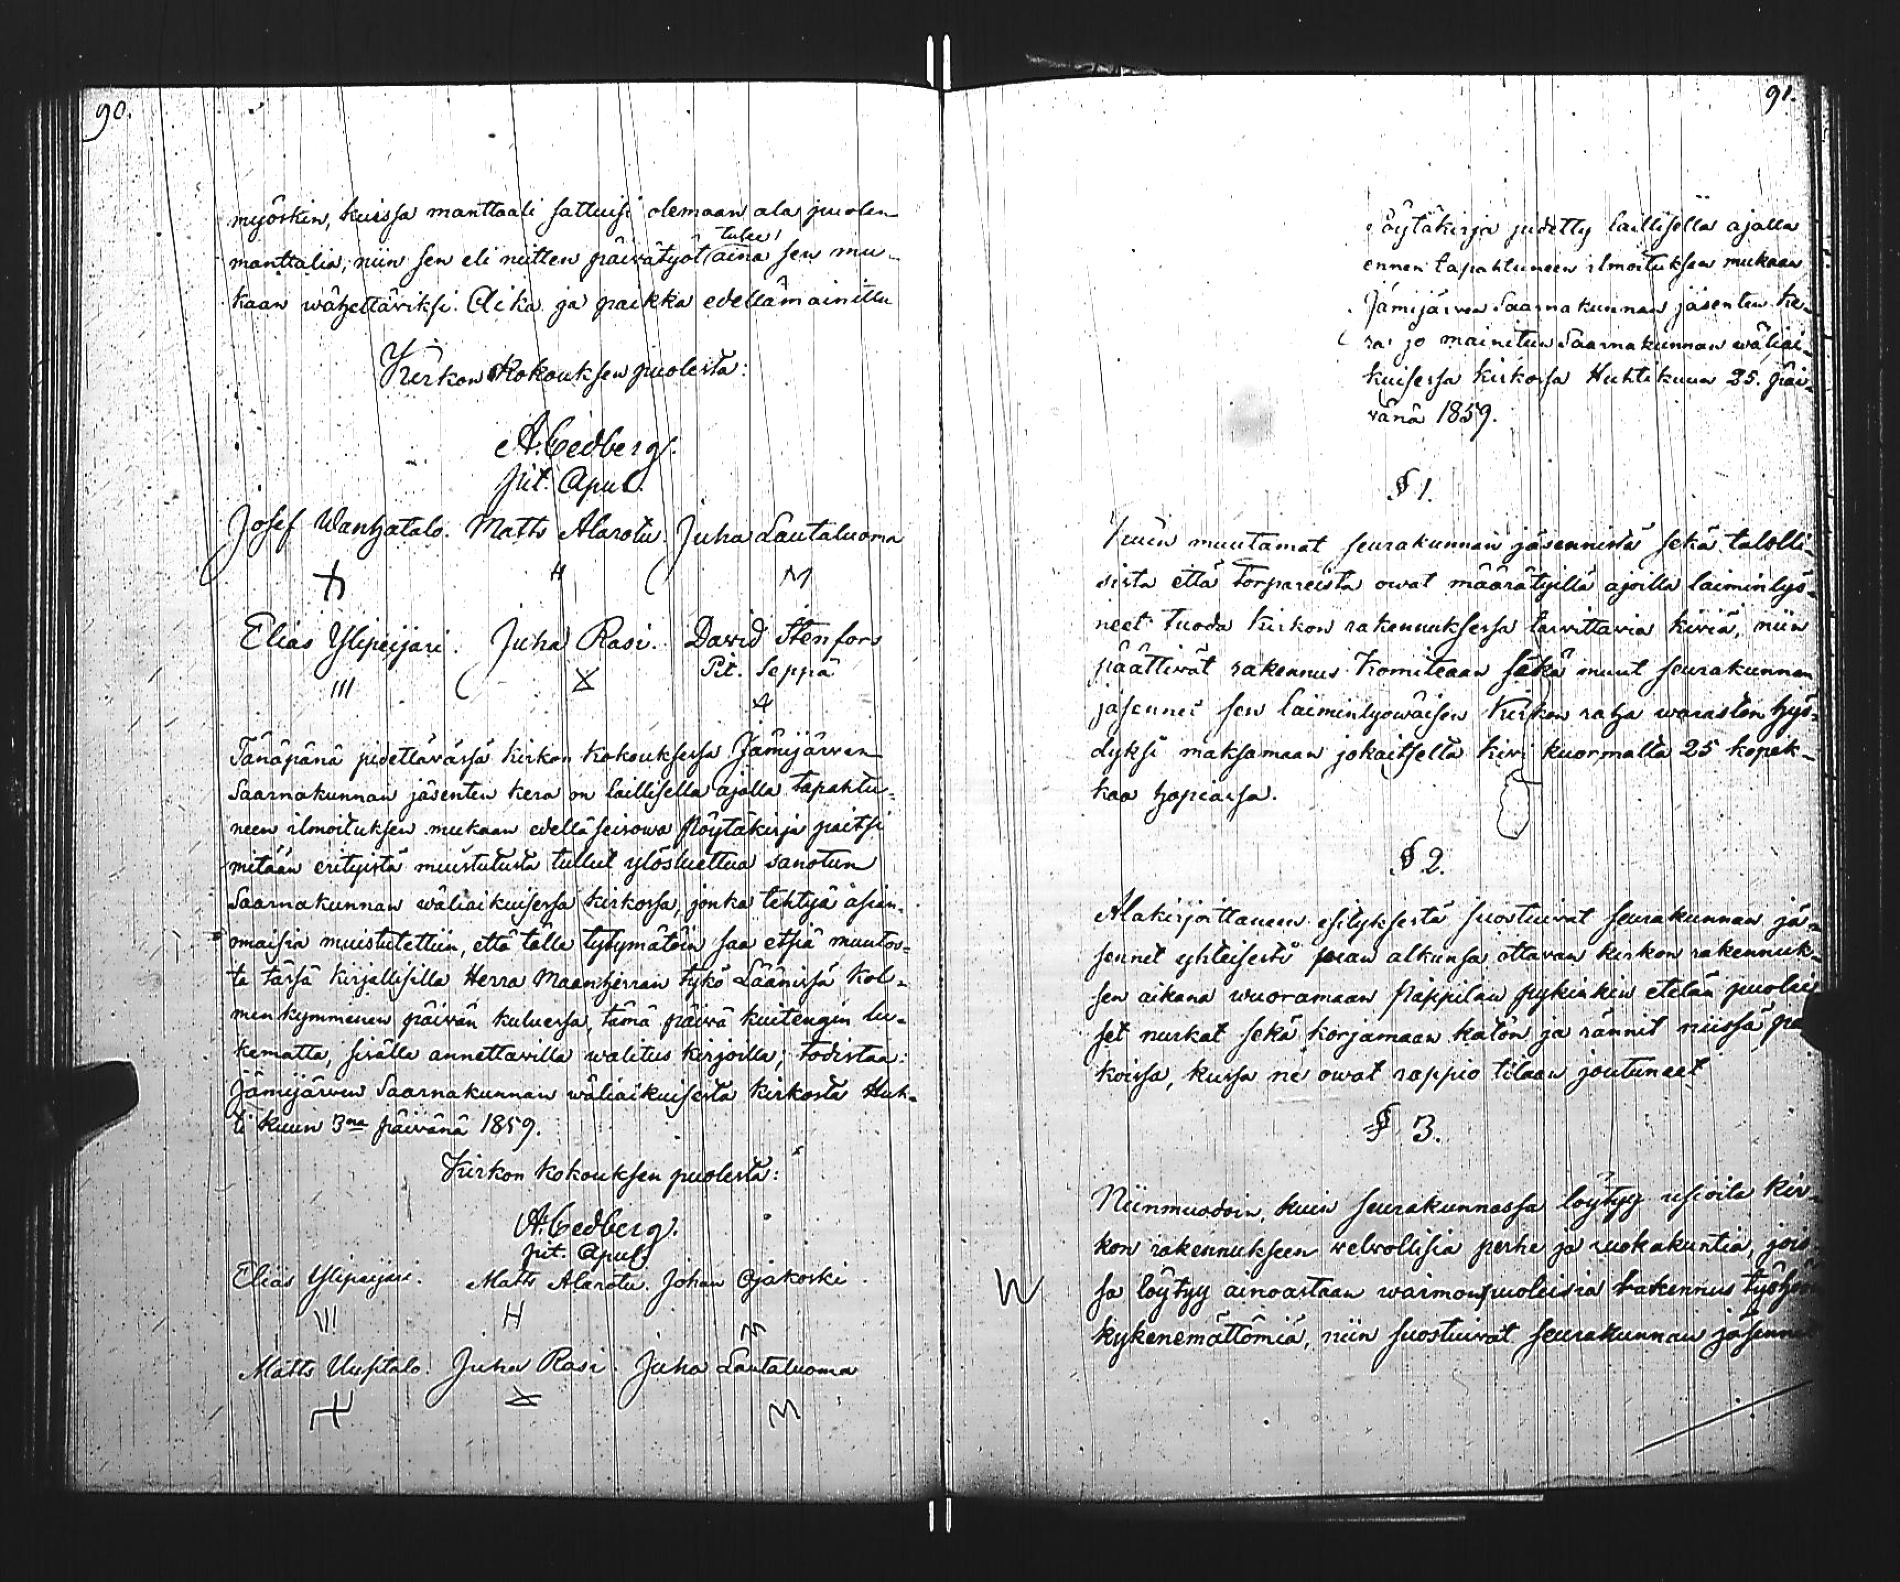 90.
myöskin, kuissa manttaali sattuisi olemaan ala puolen
manttalia, niin sen eli niitten päivätyöt tulee aina sen mu-
kaan wähettäviksi. Aika ja paikka edellämainittu
Kirkon Kokouksen puolesta:
A. Cedberg.
pit. Apul.
Josef Wanhatalo. Matts Alarotu. Juha Lautaluoma
H M
Elias Ylipeijari. Juha Rasi. David Stenfors
Pit. Seppä
III X
Tänäpänä pidettävässä kirkon kokouksessa Jämijärven
Saarnakunnan jäsenten kera on laillisella ajalla tapahtu-
neen ilmoituksen mukaan edelläseisowa Pöytäkirja paitsi
mitään erityistä muistutusta tullut ylösluettua sanotun
Saarnakunnan wäliaikuisessa kirkossa, jonka tehtyä asian-
omaisia muistutettiin, että tälle tytymätöin saa etsiä muutos-
ta tässä kirjallisilla Herra Maanherran tykö Läänissä kol-
menkymmenen päivän kuluessa, tämä päivä kuitengin lu-
kematta, sisälle annettavilla walitus kirjoilla; todistaa:
Jämijärven Saarnakunnan wäliaikuisesta kirkosta Huh-
ti kuun 3na päivänä 1859.
Kirkon kokouksen puolesta:
A. Cedberg.
pit. Apul.
Elias Ylipeijari. Matts Alarotu. Johan Ojakoski.
III H M
Matts Uusitalo. Juha Rasi. Juha Lautaluoma
X M
91.
Pöytäkirja pidetty laillisella ajalla
ennen tapahtuneen ilmoituksen mukaan
Jämijärven Saarnakunnan jäsenten ke-
ra jo mainitun Saarnakunnan wäliai-
kuisessa kirkossa Huhtikuun 25. päi-
vänä 1859.
§ 1.
Kuin muutamat seurakunnan jäsennistä sekä talolli-
sista että torpareista owat määrätyillä ajoilla laiminlyö-
neet tuoda kirkon rakennuksessa tarvittavia kiviä, niin
päättivät rakennus Komiteaan sekä muut seurakunnan
jäsennet sen laiminlyöwäisen Kirkon raha waraston hyö-
dyksi maksamaan jokaitselta kivi kuormalta 25 kopek-
kaa hopiassa.
§ 2.
Alakirjoittaneen esityksestä suostuivat seurakunnan jä-
sennet yhteisesti puun alkunsa ottavan kirkon rakennuk-
sen aikana wuoramaan Pappilan etelän puolei
set nurkat sekä korjamaan katon ja rännit niissä pai
koissa, kussa ne owat rappio tilaan joutuneet
§ 3.
Niinmuodoin, kuin seurakunnassa löytyy usioita kir-
kon rakennukseen welwollisia perhe ja ruokakuntia, jois-
sa löytyy ainoastaan waimonpuoleisia rakennus työhön
kykenemättömiä, niin suostuivat seurakunnan jäsennet